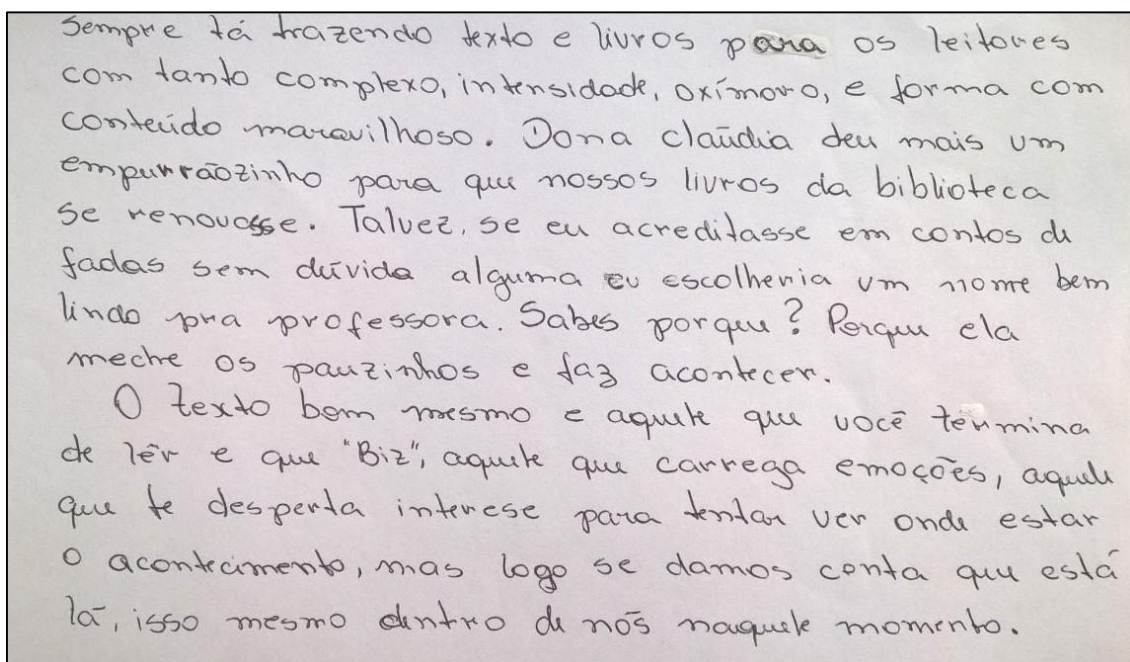 Sempre tá trazendo texto e livros para os leitores
com tanto complexo, intensidade, oxímoro, e forma com
conteúdo maravilhoso. Dona claúdia deu mais um
empurrãozinho para que nossos livros da biblioteca
se renovasse. Talvez, se eu acreditasse em contos de
fadas sem dúvida alguma eu escolheria um nome bem
lindo pra professora. Sabes porque? Porque ela
meche os pauzinhos e faz acontecer.
O texto bom mesmo e aquele que você términa
de lêr e que "Biz", aquele que carrega emoções, aquele
que te desperta interese para tentar ver onde estar
o acontecimento, mas logo se damos conta que está
lá, isso mesmo dentro de nós naquele momento.